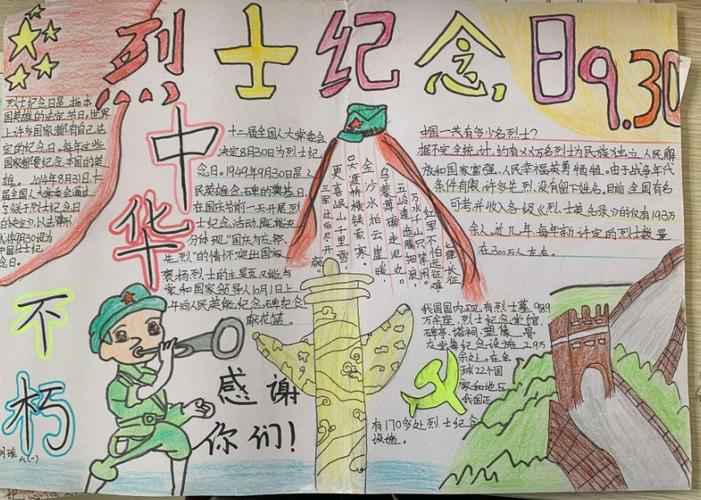 烈士纪念日9.30
中华
不朽
感谢
你们!
烈士纪念日是
国家都有自己法
定的纪念日,每年这些
国家都要纪念本国的英
十二届全国人大常委会
决定8月30日为烈士纪
念日。1949年9月30日是人
民英雄纪念碑的奠基日,
在国庆节前一天开展烈
士纪念活动,能
分体现“国庆勿忘祭
先烈”的情怀,突出国家
褒扬烈士的主题,又能与
家和国家领导人10月1日上
午向人民英雄纪念碑敬
献花篮。
七律·长征
红军不怕远征难,
万水千山只等闲。
五岭逶迤腾细浪,
乌蒙磅礴走泥丸。
金沙水拍云崖暖,
大渡桥横铁索寒。
更喜岷山千里雪,
三军过后尽开颜。
中国一共有多少名烈士?
据不完全统计,约有2000万名烈士为民族独立、人民解
放和国家富强、人民幸福英勇牺牲。由于战争年代
条件有限,许多先烈没有留下姓名,目前全国有名
可考并收入各级《烈士英名录》的仅有193万
余人。近几年,每年新评定的烈士数量
在300人左右。
我国国内现有烈士墓989
万余座,烈士纪念堂馆、
碑亭、塔祠、塑像、骨
灰堂等纪念设施2.95
余处。在全
球22个国
家和地区
我国还
有170多处烈士纪念
设施。